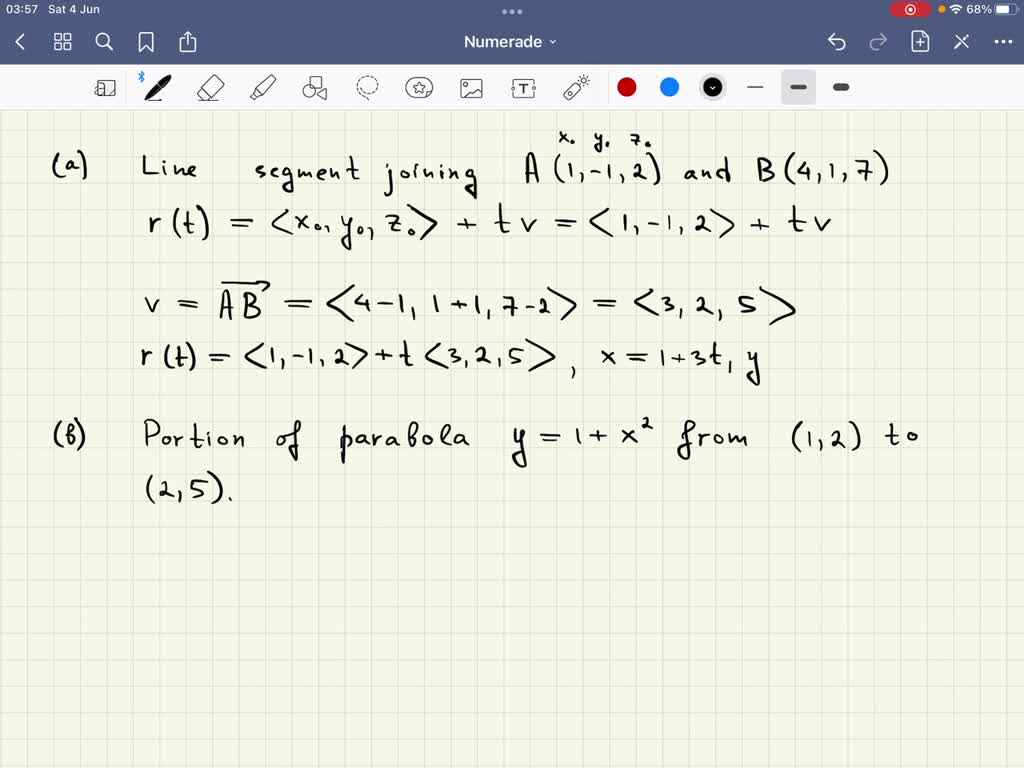 03:57 Sat 4 Jun 68%
Numerade
x₀ y₀ z₀
(a) Line segment joining A (1,-1,2) and B(4,1,7)
r(t) = <x₀, y₀, z₀> + tv = <1,-1,2> + tv
v = \overrightarrow{AB} = <4-1, 1+1, 7-2> = <3, 2, 5>
r(t) = <1,-1,2> + t <3,2,5>, x = 1+3t, y
(b) Portion of parabola y = 1 + x² from (1,2) to
(2,5).